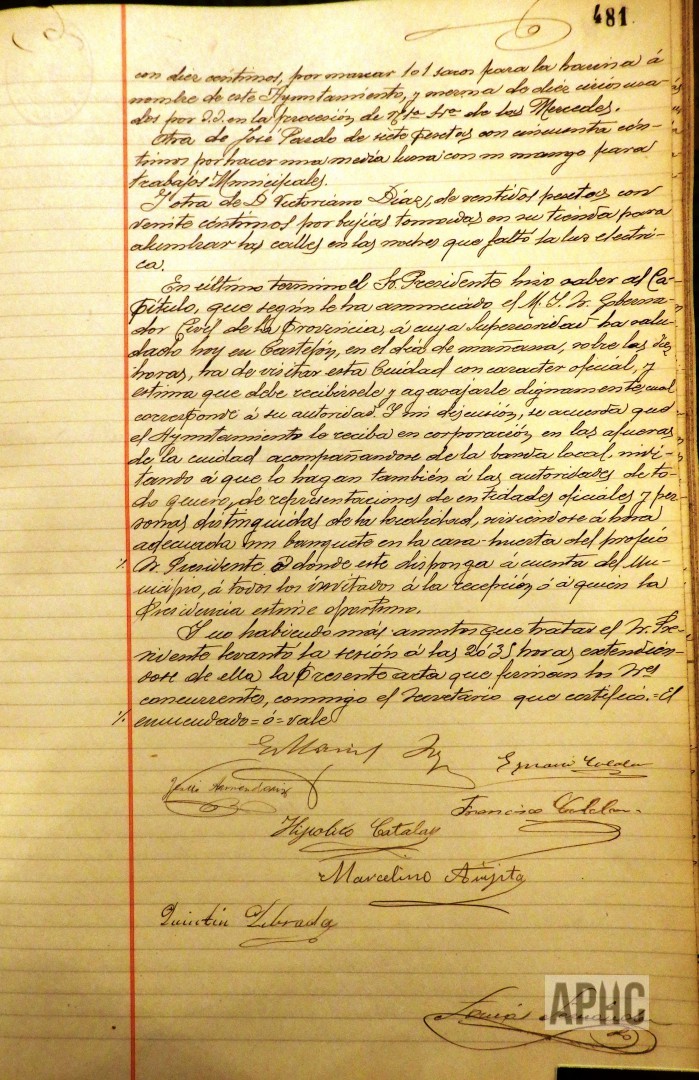 481
con diez céntimos, por marcar 101 sacos para la harina á
nombre de este Ayuntamiento, y merma de diez cirios usa-
dos por id. en la procesión de Ntra. Sra. de las Mercedes.
Otra de José Pardo de siete pesetas con cincuenta cén-
timos por hacer una media luna con su mango para
trabajos Municipales.
Y otra de D. Victoriano Díaz, de ventidos pesetas con
veinte céntimos por bujías tomadas en su tienda para
alumbrar las calles en las noches que faltó la luz eléctri-
ca.
En último termino el Sr. Presidente hizo saber al Ca-
pítulo, que según le ha anunciado el M. I. Sr. Goberna-
dor Civil de la Provincia, á cuya Superioridad ha salu-
dado hoy en Castejón, en el día de mañana, sobre las diez
horas, ha de visitar esta Ciudad con caracter oficial, y
estima que debe recibírsele y agasajarle dignamente, cual
corresponde á su autoridad. Y sin discusión, se acuerda que
el Ayuntamiento lo reciba en corporación en las afueras
de la ciudad acompañandose de la banda local, invi-
tando á que lo hagan también á las autoridades de to-
do genero, de representaciones de entidades oficiales y per-
sonas distinguidas de la localidad, sirviendose á hora
adecuada un banquete en la casa-huerta del propio
Sr. Presidente ó donde este disponga á cuenta del Mu-
nicipio, á todos los invitados á la recepción ó á quien la
Presidencia estime oportuno.
Y no habiendo más asuntos que tratar el Sr. Pre-
sidente levantó la sesión á las 20'35 horas extendien-
dose de ella la presente acta que firman los Sres
concurrentes, conmigo el Secretario que certifico. = El
enmendado = ó = vale
Hipolito Catalan
Francisco Catalan
Marcelino
Quintin
APHC